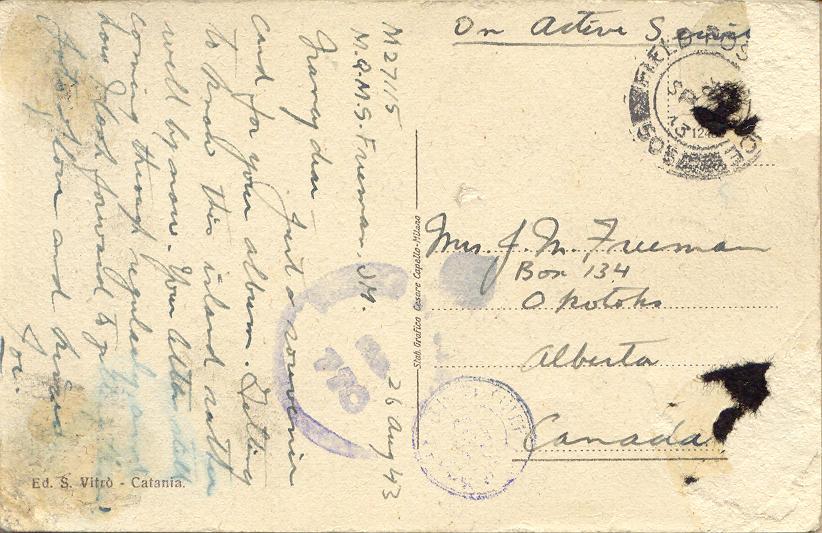 On Active
FIELD POS CE
SP
13
505
M27115
M.Q.M.S. Freeman, J.M.
26 Aug 43
Granny dear
Just a souvenir
and for your album. Getting
to know this island rather
well by now. Your
coming through regularly and
how I look forward to
love and kisses
Joe.
Mrs. J. M. Freeman
Box 134
Okotoks
Alberta
Canada
770
Stab. Grafico Cesare Capello-Milano
Ed. S. Vitrò - Catania.